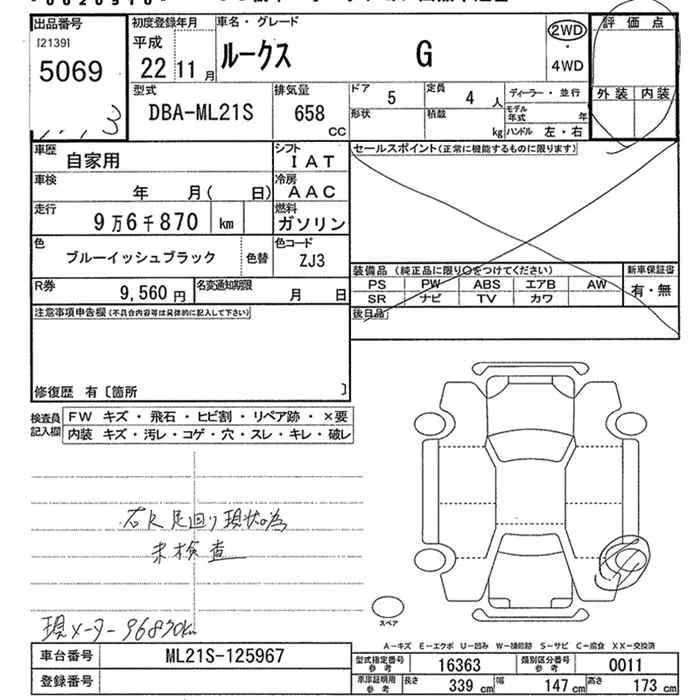 出品番号
[2139]
5069
初度登録年月
平成
22 11月
車名・グレード
ルークス G
2WD
・
4WD
評価点
外装 内装
型式
DBA-ML21S
排気量
658
CC
ドア
5
定員
4人
形状
積載
kg
ディーラー・並行
モデル年式 年
ハンドル 左・右
車歴
自家用
シフト
IAT
車検
年 月( 日)
冷房
AAC
走行
9万6千870 km
燃料
ガソリン
色
ブルーイッシュブラック
色替
色コード
ZJ3
R券
9,560円
名変通知期限
月 日
セールスポイント(正常に機能するものに限ります)
装備品(純正品に限り○をつけてください)
新車保証書
PS PW ABS エアB AW
SR ナビ TV カワ
有・無
後日品
注意事項申告欄(不具合内容等は具体的に記入して下さい)
修復歴 有〔箇所 〕
検査員記入欄
FW キズ・飛石・ヒビ割・リペア跡・×要
内装 キズ・汚レ・コゲ・穴・スレ・キレ・破レ
足回り現状の為
未検査
現メーター 96830km
スペア
A－キズ E－エクボ U－凹み W－補修跡 S－サビ C－腐食 XX－交換済
車台番号
ML21S-125967
登録番号
型式指定番号
参考
16363
類別区分番号
参考
0011
車庫証明用
参考
長さ
339 cm
幅
147 cm
高さ
173 cm